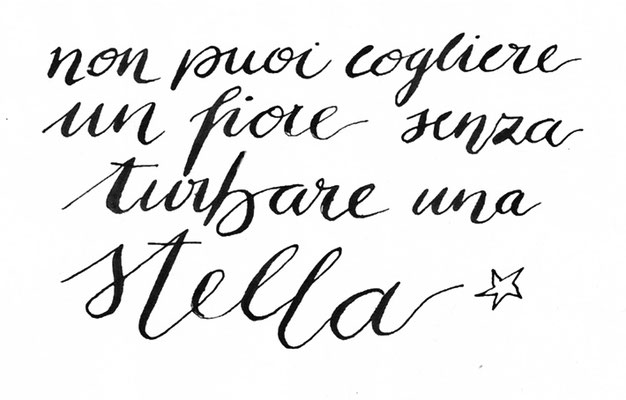 non puoi cogliere
un fiore senza
turbare una
stella